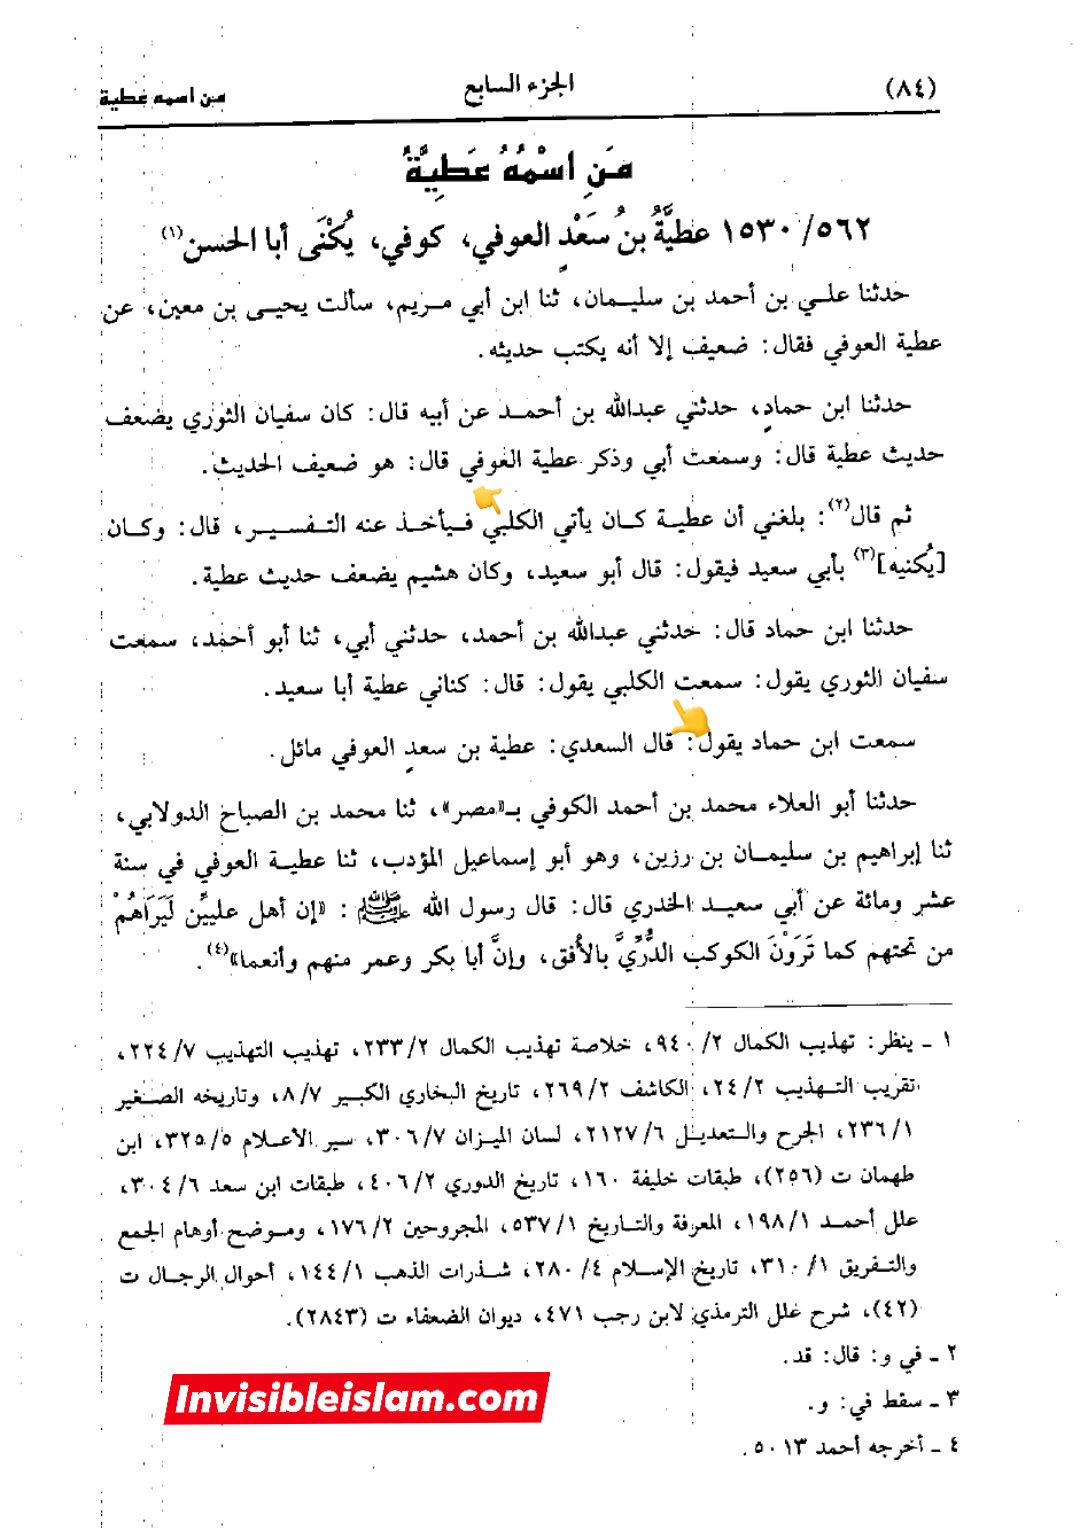 (٨٤) الجزء السابع من اسمه عطية
مَنِ اسْمُهُ عَطِيَّةُ
١٥٣٠/٥٦٢ عطيَّةُ بنُ سَعْدٍ العوفي، كوفي، يُكْنَى أبا الحسن(١)
حدثنا علي بن أحمد بن سليمان، ثنا ابن أبي مريم، سألت يحيى بن معين، عن
عطية العوفي فقال: ضعيف إلا أنه يكتب حديثه.
حدثنا ابن حمادٍ، حدثني عبدالله بن أحمد عن أبيه قال: كان سفيان الثوري يضعف
حديث عطية قال: وسمعت أبي وذكر عطية العوفي قال: هو ضعيف الحديث.
ثم قال(٢): بلغني أن عطية كان يأتي الكلبي فيأخذ عنه التفسير، قال: وكان
[يُكنيه](٣) بأبي سعيد فيقول: قال أبو سعيد، وكان هشيم يضعف حديث عطية.
حدثنا ابن حماد قال: حدثني عبدالله بن أحمد، حدثني أبي، ثنا أبو أحمد، سمعت
سفيان الثوري يقول: سمعت الكلبي يقول: قال: كناني عطية أبا سعيد.
سمعت ابن حماد يقول: قال السعدي: عطية بن سعدٍ العوفي مائل.
حدثنا أبو العلاء محمد بن أحمد الكوفي بـ«مصر»، ثنا محمد بن الصباح الدولابي،
ثنا إبراهيم بن سليمان بن رزين، وهو أبو إسماعيل المؤدب، ثنا عطية العوفي في سنة
عشر ومائة عن أبي سعيد الخدري قال: قال رسول الله ﷺ: «إن أهل عليين لَيَرَاهُمْ
من تحتهم كما تَرَوْنَ الكوكب الدُّرِّيَّ بالأُفق، وإنَّ أبا بكر وعمر منهم وأنعما»(٤).
١ ـ ينظر: تهذيب الكمال ٩٤٠/٢، خلاصة تهذيب الكمال ٢٣٣/٢، تهذيب التهذيب ٢٢٤/٧،
تقريب التهذيب ٢٤/٢، الكاشف ٢٦٩/٢، تاريخ البخاري الكبير ٨/٧، وتاريخه الصغير
٢٣٦/١، الجرح والتعديل ٢١٢٧/٦، لسان الميزان ٣٠٦/٧، سير الاعلام ٣٢٥/٥، ابن
طهمان ت (٢٥٦)، طبقات خليفة ١٦٠، تاريخ الدوري ٤٠٦/٢، طبقات ابن سعد ٣٠٤/٦،
علل أحمد ١٩٨/١، المعرفة والتاريخ ٥٣٧/١، المجروحين ١٧٦/٢، وموضح أوهام الجمع
والتفريق ٣١٠/١، تاريخ الإسلام ٢٨٠/٤، شذرات الذهب ١٤٤/١، أحوال الرجال ت
(٤٢)، شرح علل الترمذي لابن رجب ٤٧١، ديوان الضعفاء ت (٢٨٤٣).
٢ ـ في و: قال: قد.
٣ ـ سقط في: و.
٤ ـ أخرجه أحمد ٥٠١٣.
Invisibleislam.com